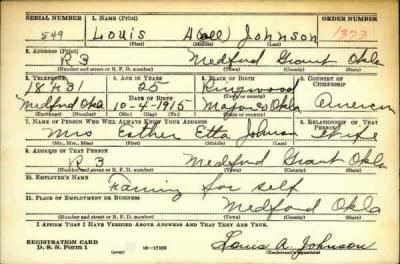 SERIAL NUMBER 1. NAME (Print) ORDER NUMBER
549 Louis Johnson 1373
(First) (Middle) (Last)
2. ADDRESS (Print)
R 3 Medford Grant Okla
(Number and street or R. F. D. number) (Town) (County) (State)
3. TELEPHONE 4. AGE IN YEARS 5. PLACE OF BIRTH 6. COUNTRY OF CITIZENSHIP
18F31 25 Ringwood
Medford Okla DATE OF BIRTH
10-4-1915 Major Okla
(Exchange) (Number) (Mo.) (Day) (Yr.) (State or country)
7. NAME OF PERSON WHO WILL ALWAYS KNOW YOUR ADDRESS 8. RELATIONSHIP OF THAT PERSON
Mrs Esther Etta Johnson Wife
(Mr., Mrs., Miss) (First) (Middle) (Last)
9. ADDRESS OF THAT PERSON
R 3 Medford Grant Okla
(Number and street or R. F. D. number) (Town) (County) (State)
10. EMPLOYER'S NAME
Farming for self
11. PLACE OF EMPLOYMENT OR BUSINESS
Medford Okla
(Number and street or R. F. D. number) (Town) (County) (State)
I AFFIRM THAT I HAVE VERIFIED ABOVE ANSWERS AND THAT THEY ARE TRUE.
REGISTRATION CARD
D. S. S. Form 1 (over) Louis A. Johnson
(Registrant's signature)